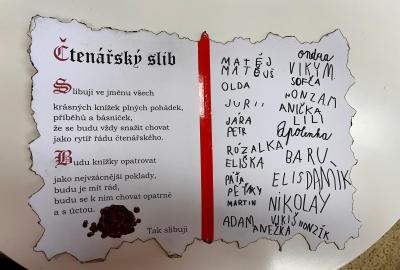 Čtenářský slib
Slibuji ve jménu všech
krásných knížek plných pohádek,
příběhů a básniček,
že se budu vždy snažit chovat
jako rytíř řádu čtenářského.
Budu knížky opatrovat
jako nejvzácnější poklady,
budu je mít rád,
budu se k nim chovat opatrně
a s úctou.
Tak slibuji
MATĚJ
MATOUŠ
OLDA
JURII
JÁRA
PETR
RÓZALKA
ELIŠKA
PÁŤA
PEŤKY
MARTIN
ADAM
ANEŽKA
ondra
VIKY M.
SOFČA
HONZA M
ANIČKA
LILI
Apolenka
BARU
ELIS DAMIK
NIKOLAY
VIKIS HONZÍK